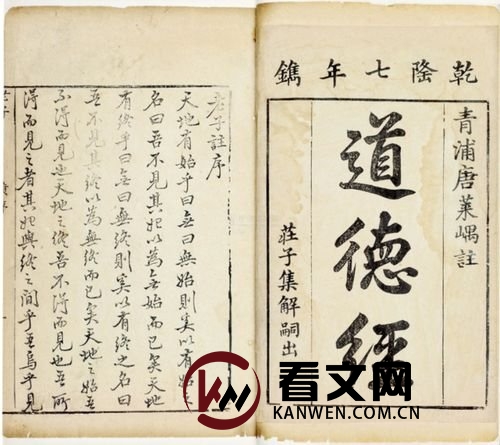 乾隆七年鐫
青浦唐萊嵎註
道德經
莊子集解嗣出
老子註序
天地有始乎曰無曰無始則奚以有始之
名曰吾不見其始以為無始而已矣天地
有終乎曰無曰無終則奚以有終之名曰
吾不見其終以為無終而已矣天地之始吾
不得而見也天地之終吾不得而見也吾所
得而見之者其始與終之間乎吾烏乎見
看文网
KANWEN.COM.CN